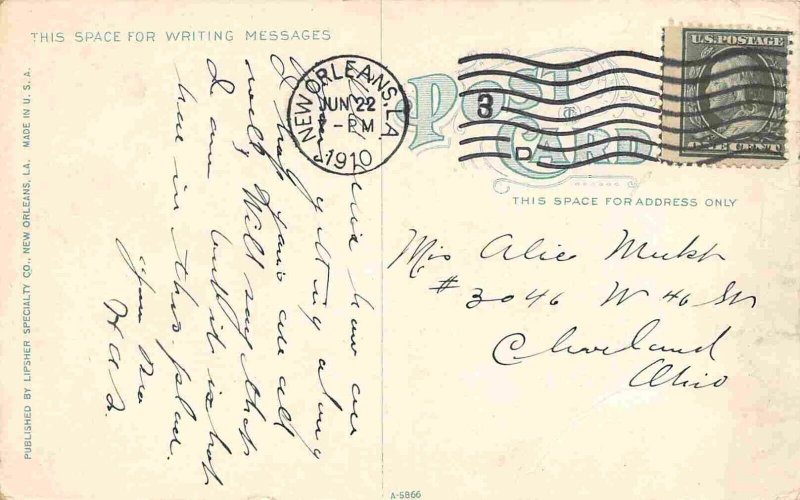 THIS SPACE FOR WRITING MESSAGES
how are
you getting along
I hope you are all
well, Will say that
I am but it is hot
here in this place.
Your
PUBLISHED BY LIPSHER SPECIALTY CO., NEW ORLEANS, LA. MADE IN U. S. A.
NEW ORLEANS, LA
JUN 22
-PM
1910
3
D
POST CARD
U.S. POSTAGE
THIS SPACE FOR ADDRESS ONLY
Miss Alice
# 3046 W 46 St
Cleveland
Ohio
A-5866